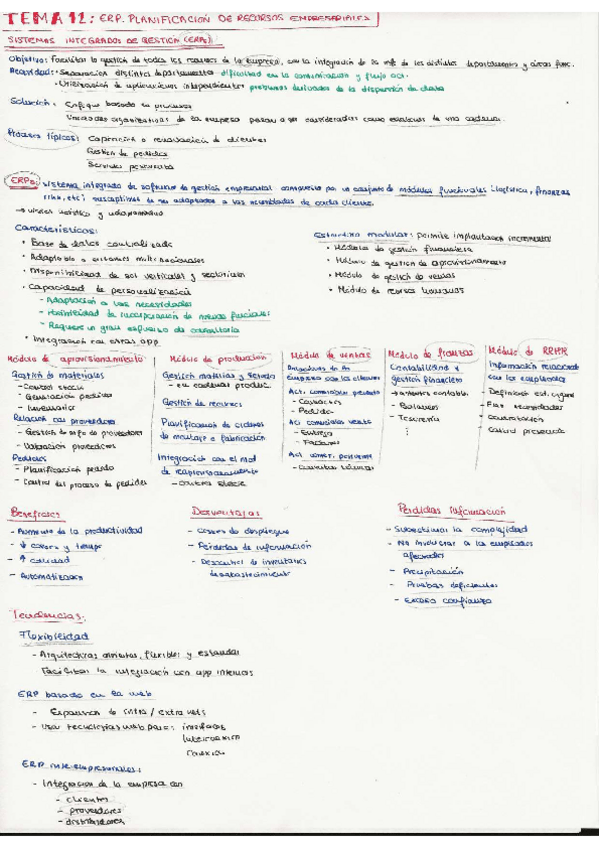 TEMA 12: ERP. PLANIFICACIÓN DE RECURSOS EMPRESARIALES
SISTEMAS INTEGRADOS DE GESTIÓN (ERPs):
Objetivo: Facilitar la gestión de todos los recursos de la empresa, con la integración de la info de los distintos departamentos y áreas func.
· Separación distintos departamentos dificultad en la comunicación y flujo
· Utilización de aplicaciones independientes problemas derivados de la dispersión de datos
Solución: Enfoque basado en procesos
organizativas de la empresa pasan a ser consideradas como eslabones de una cadena.
Procesos típicos: Captación o renovación de clientes
Gestión de pedidos
Servicio postventa
ERPs: sistema integrado de software de gestión empresarial compuesto por un conjunto de módulos funcionales (logística, finanzas
rrhh, etc) susceptibles de ser adaptados a las necesidades de cada cliente.
Características:
· Base de datos centralizada
· Adaptable a entornos multinacionales
· Disponibilidad de sol verticales y sectoriales
· Capacidad de personalización
- Adaptación a las necesidades
- Posibilidad de incorporación de nuevas funciones
- Requiere un gran esfuerzo de consultoría
· Integración con otras app
Estructura modular: permite implantación incremental
· Módulo de gestión financiera
· Módulo de gestión de aprovisionamiento
· Módulo de gestión de ventas
· Módulo de recursos humanos
Módulo de aprovisionamiento
Gestión de materiales
- Control stock
- Generación pedidos
- Inventarios
Relación con proveedores
- Gestión de info de proveedores
- Valoración proveedores
Pedidos
- Planificación pedido
- Control del proceso de pedidos
Módulo de producción
Gestión materias y
Gestión de recursos
Planificación de órdenes
de montaje o fabricación
Integración con el mod
de
Módulo de ventas
empresa con los clientes
Act. comerciales preventa
- Contactos
- Pedido
Act comerciales venta
- Entrega
- Facturas
Act comer. postventa
Módulo de finanzas
Contabilidad y
gestión financiera
contable
- Balances
- Tesorería
⋮
Módulo de RRHH
Información relacionada
con los empleados
- Definición est. organi
- contratación
- Control presencia
Beneficios
- Aumento de la productividad
- ↓ costes y tiempo
- ↑ calidad
- Automatización
Desventajas
- Costes de despliegue
- Pérdidas de información
- Descontrol de inventarios
desabastecimiento
Pérdidas información
- Subestimar la complejidad
- No involucrar a los empleados
afectados
- Precipitación
- Pruebas deficientes
- Exceso confianza
Tendencias:
Flexibilidad
- Arquitecturas abiertas, flexibles y estándar
Facilitar la integración con app internas
ERP basado en la web
- Expansión de intra / extra nets
- Usa tecnologías web para: interfaces
ERP inter-empresariales:
- Integración de la empresa con
- clientes
- proveedores
- distribuidores